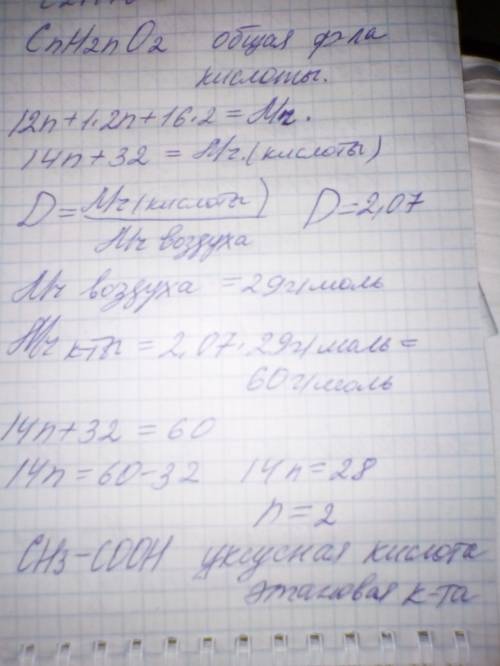 CnH2nO2 общая ф-ла
кислоты.
12n+1·2n+16·2 = Mr.
14n+32 = Mr.(кислоты)
D = Mr(кислоты) D=2,07
Mr воздуха
Mr воздуха = 29г/моль
Mr к-ты = 2,07·29г/моль =
60г/моль
14n+32 = 60
14n = 60-32 14n=28
n = 2
CH3-COOH уксусная кислота
этановая к-та